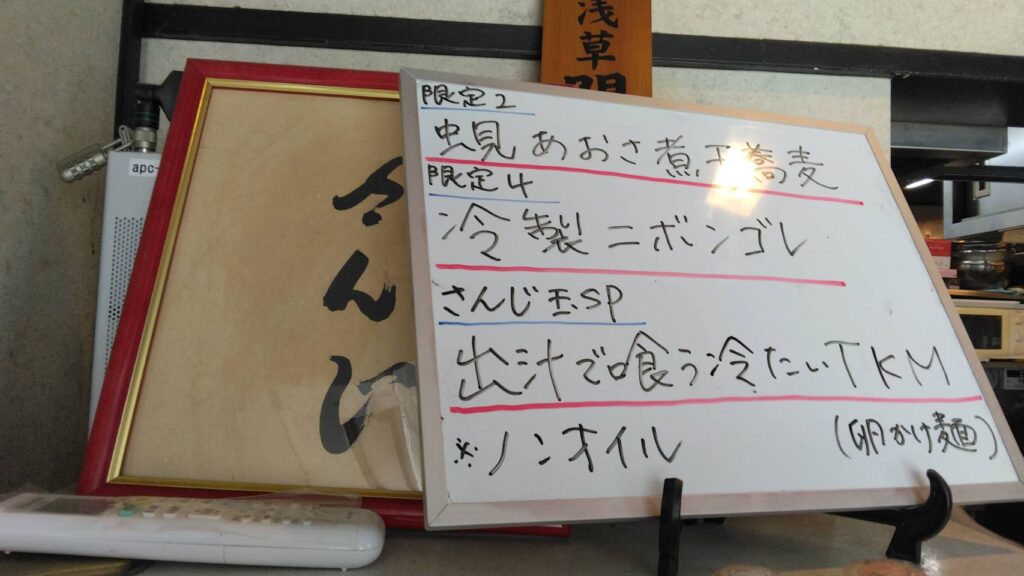 浅草開
さんじ
apc-
限定2
虫見 あおさ煮玉蕎麦
限定4
冷製ニボンゴレ
さんじ玉SP
出汁で喰う冷たいTKM
※ノンオイル
(卵かけ麺)